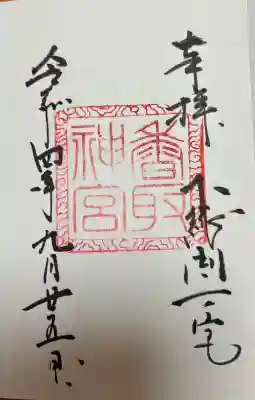 奉拝
下総國一宮
香取
神宮
令和四年九月廿五日